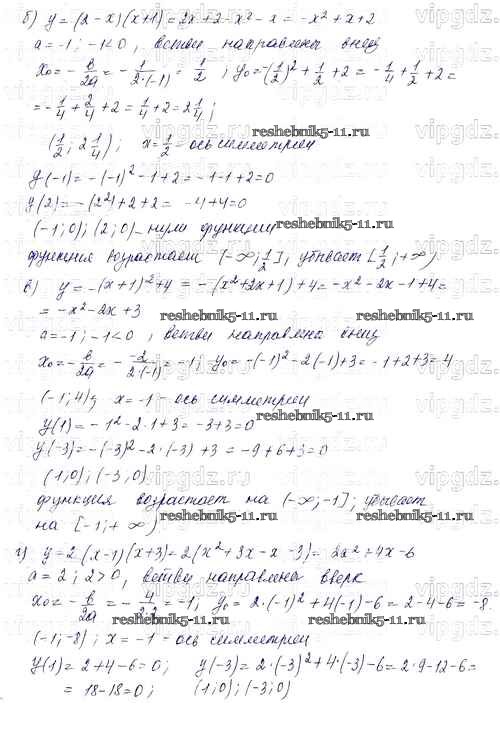 б) y=(2-x)(x+1)=2x+2-x²-x=-x²+x+2
a=-1; -1<0, ветви направлены вниз
x₀=-b/2a=-1/2·(-1)=1/2; y₀=-(1/2)²+1/2+2=-1/4+1/2+2=
=-1/4+2/4+2=1/4+2=2 1/4;
(1/2; 2 1/4); x=1/2-ось симметрии
y(-1)=-(-1)²-1+2=-1-1+2=0
y(2)=-(2²)+2+2=-4+4=0
(-1;0); (2;0)-нули функции
функция возрастает (-∞;1/2], убывает [1/2;+∞)
в) y=-(x+1)²+4=-(x²+2x+1)+4=-x²-2x-1+4=
=-x²-2x+3
a=-1; -1<0, ветви направлены вниз
x₀=-b/2a=-2/2·(-1)=-1; y₀=-(-1)²-2(-1)+3=-1+2+3=4
(-1;4); x=-1-ось симметрии
y(1)=-1²-2·1+3=-3+3=0
y(-3)=-(-3)²-2·(-3)+3=-9+6+3=0
(1;0); (-3;0)
функция возрастает на (-∞;-1]; убывает
на [-1;+∞)
г) y=2(x-1)(x+3)=2(x²+3x-x-3)=2x²+4x-6
a=2; 2>0, ветви направлены вверх
x₀=-b/2a=-4/2·2=-1; y₀=2·(-1)²+4(-1)-6=2-4-6=-8
(-1;-8); x=-1-ось симметрии
y(1)=2+4-6=0; y(-3)=2·(-3)²+4·(-3)-6=2·9-12-6=
=18-18=0; (1;0); (-3;0)
reshebnik5-11.ru
reshebnik5-11.ru
reshebnik5-11.ru
reshebnik5-11.ru
reshebnik5-11.ru
reshebnik5-11.ru
reshebnik5-11.ru
reshebnik5-11.ru
vipgdz.ru